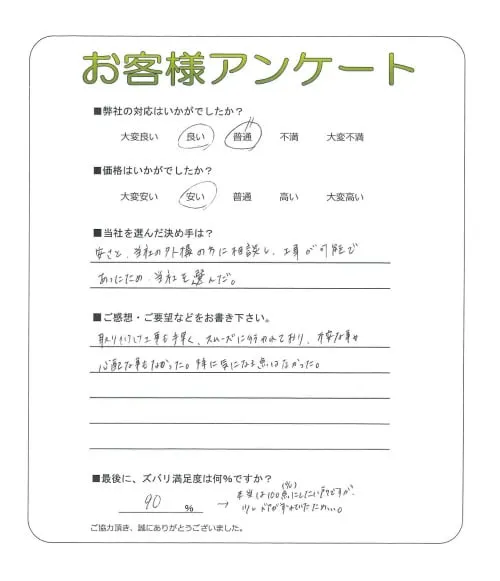 お客様アンケート
■弊社の対応はいかがでしたか？
大変良い 良い 普通 不満 大変不満
■価格はいかがでしたか？
大変安い 安い 普通 高い 大変高い
■当社を選んだ決め手は？
安さと、当社の外構の方に相談し、工事が可能で
あったため、当社を選んだ。
■ご感想・ご要望などをお書き下さい。
取り付け工事も手早く、スムーズに行われており、不安な事や
心配な事もなかった。特に気になる点はなかった。
■最後に、ズバリ満足度は何%ですか？
90 % → 本当は100点(%)にしたい所ですが、
少しドアが ため…。
ご協力頂き、誠にありがとうございました。